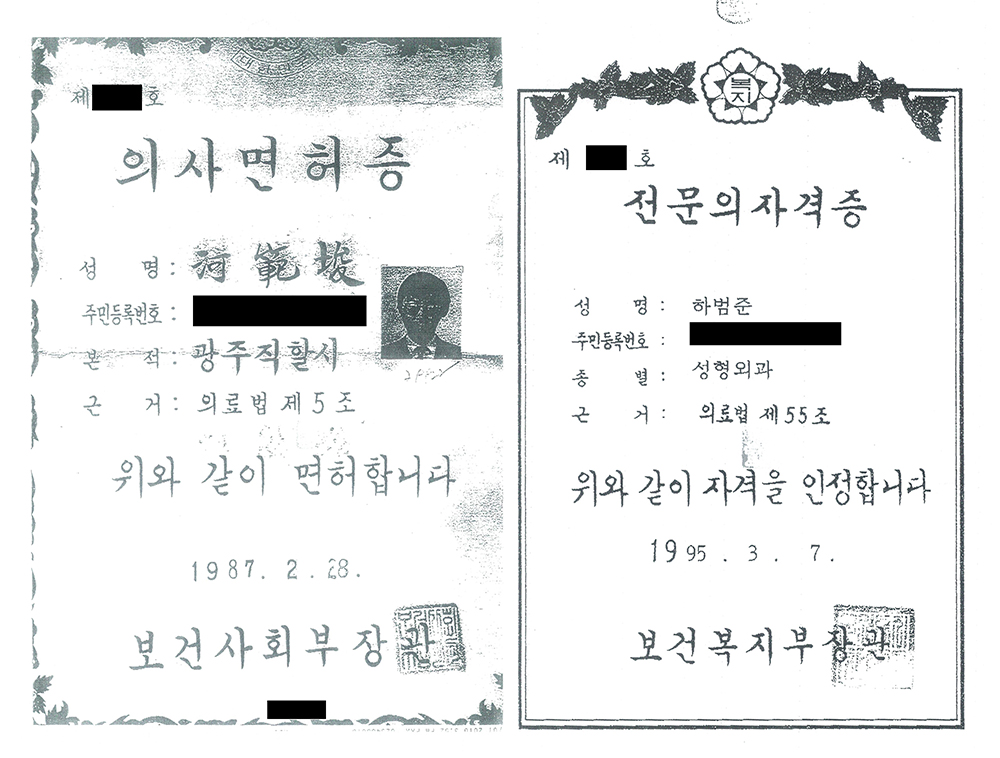 제 호
의사면허증
성 명 : 河範埈
주민등록번호 :
본 적 : 광주직할시
근 거 : 의료법 제5조
위와 같이 면허합니다
1987. 2. 28.
보건사회부장관
복지
제 호
전문의자격증
성 명 : 하범준
주민등록번호 :
종 별 : 성형외과
근 거 : 의료법 제55조
위와 같이 자격을 인정합니다
1995. 3. 7.
보건복지부장관